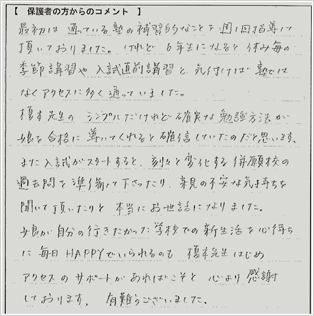 【 保護者の方からのコメント 】
最初は 通っている塾の補習的なことを 週1回指導して
頂いておりました。けれど 6年生になると 休み毎の
季節講習や 入試直前講習と 気付けば 塾では
なく アクセスに多く通っていました。
榎本先生の シンプルだけれど 確実な勉強方法が
娘を合格に 導いてくれると 確信していたのだと思います。
また 入試がスタートすると、刻々と変化する 併願校の
過去問を 準備して下さったり、親の不安な気持ちを
聞いて頂いたりと 本当に お世話になりました。
娘が自分の行きたかった学校での新生活を心待ち
に 毎日 HAPPYでいられるのも 榎本先生はじめ
アクセスの サポートがあればこそと 心より 感謝
しております。 有難うございました。